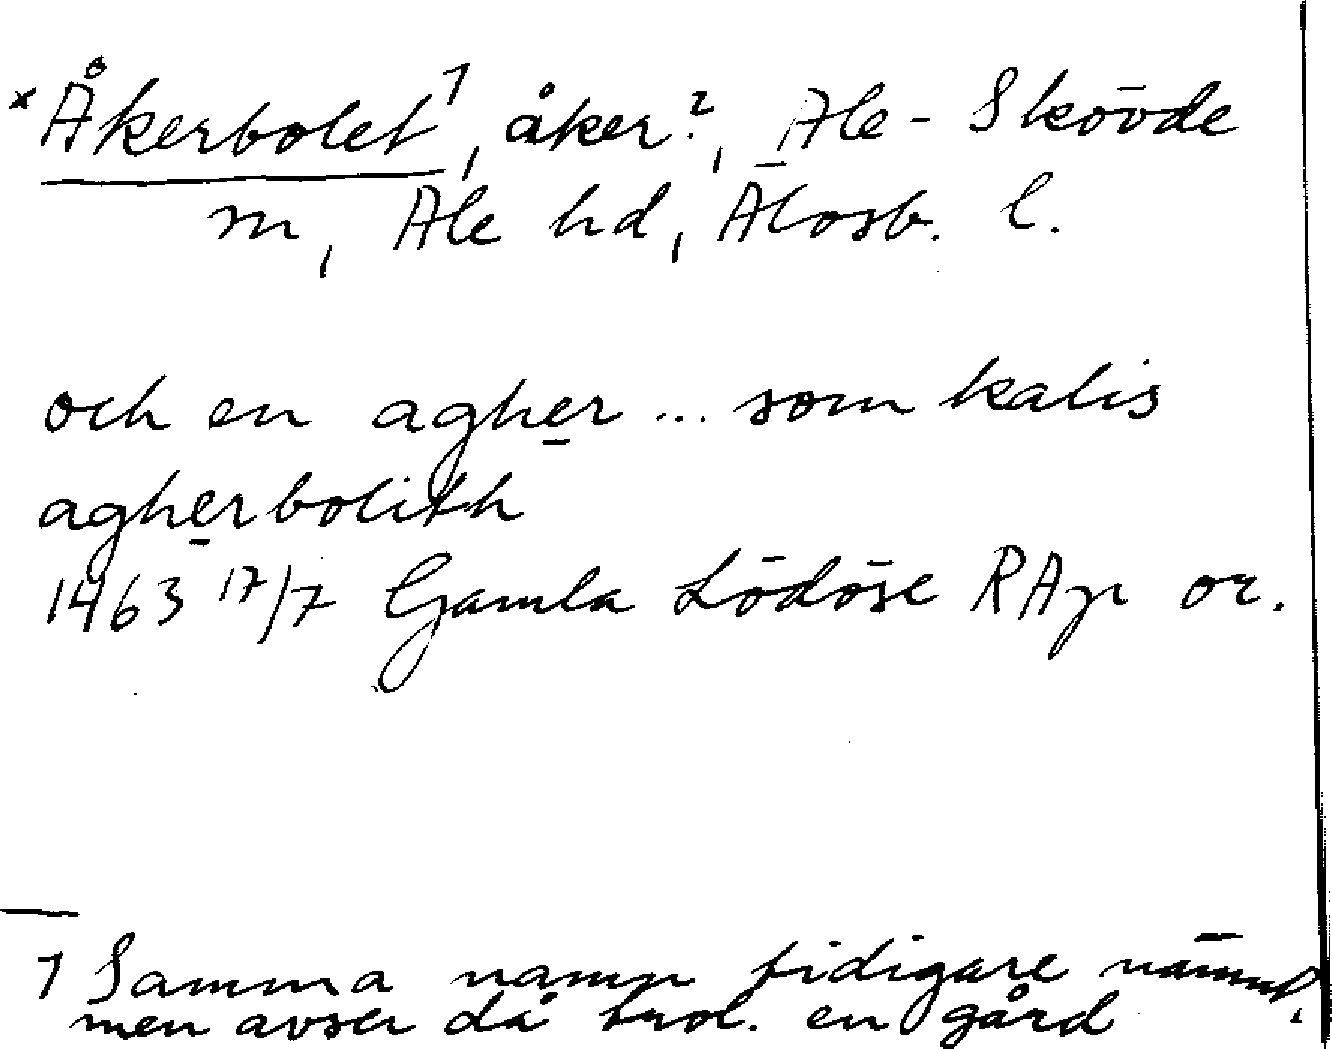 ×Åkerbolet¹, åker?, Ale-Skövde
m, Ale hd, Älvsb. l.
och en agher ... som kalis
agherbolith
1463 17/7 Gamla Lödöse RAp or.
1 Samma namn tidigare nämnt,
men avser då trol. en gård